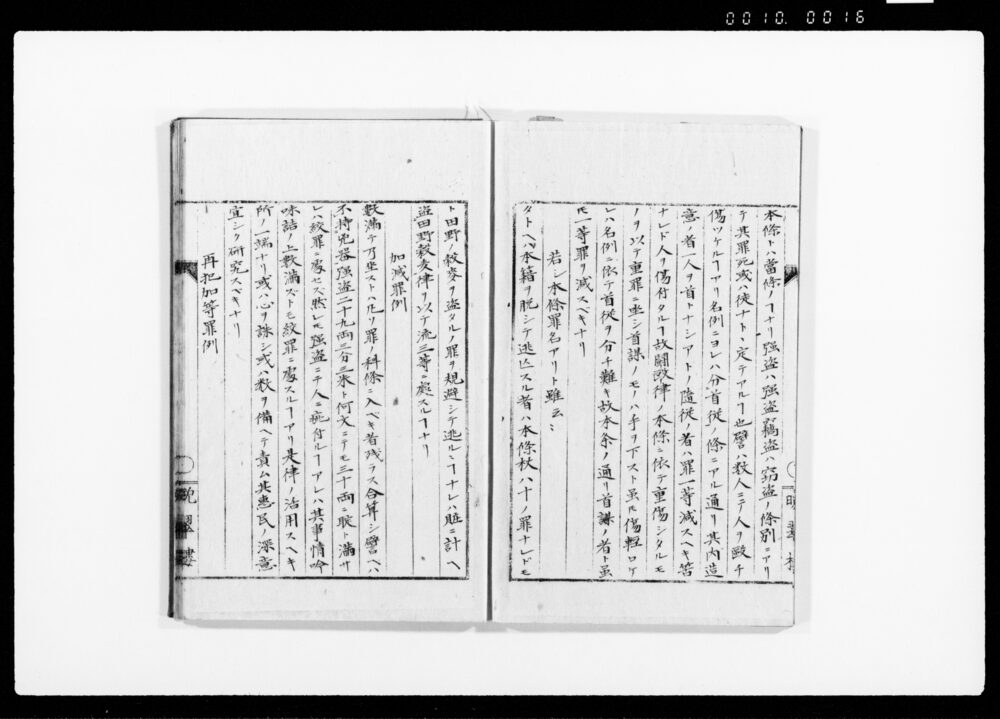 0010. 0016
本條トハ當條ノヿナリ強盗ハ強盗竊盗ハ窃盗ノ條別ニアリ
テ其罪死或ハ徒ナト、定テアルヿ也譬ハ数人ニテ人ヲ毆チ
傷ツケルヿアリ名例ニヨレハ分首従ノ條ニアル通リ其内造
意ノ者一人ヲ首トナシアトノ隨従ノ者ハ罪一等減スヘキ筈
ナレド人ヲ傷付タルヿ故鬪毆律ノ本條ニ依テ重傷シタルモ
ノヲ以テ重罪ニ坐シ首謀ノモノハ手ヲ下スト虽モ傷軽ロケ
レハ名例ニ依テ首従ヲ分チ難キ故本条ノ通リ首謀ノ者ト虽
モ一等罪ヲ減スベキナリ
若シ本條罪名アリト雖云〻
タトヘハ本籍ヲ脱シテ逃亡スル者ハ本條杖八十ノ罪ナレドモ
ト田野ノ穀麥ヲ盗タルノ罪ヲ規避シテ逃ルヽヿナレハ賍ニ計ヘ
盗田野穀麦律ヲ以テ流三等ニ處スルヿナリ
加減罪例
數滿テ乃坐ストハ凡ソ罪ノ科條ニ入ベキ者残ラス合算シ譬ヘハ
不持兇器強盗二十九両三分三朱ト何文ニテモ三十両ニ聢ト滿サ
レハ絞罪ニ處セズ然レモ強盗ニテ人ニ疵付ルヿアレハ其事情吟
味詰ノ上數滿ズトモ絞罪ニ處スルヿアリ是律ノ活用スヘキ
所ノ一端ナリ或ハ心ヲ誅シ或ハ数ヲ備ヘテ責ム其悪民ノ深意
宜シク研究スベキナリ
再犯加等罪例
晩翠樓